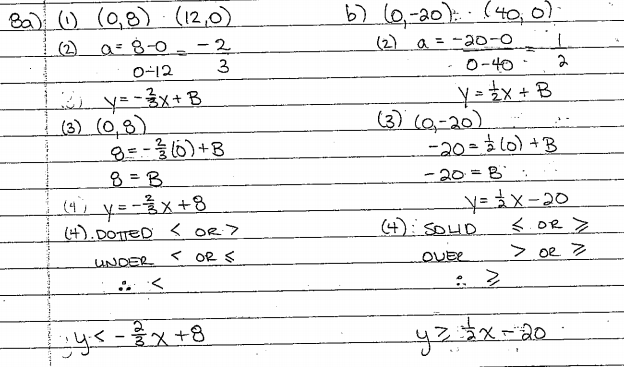 8a) (1) (0,8) (12,0)
(2) a = 8-0 = -2
0-12 3
y = -2/3x + B
(3) (0,8)
8 = -2/3(0) + B
8 = B
(4) y = -2/3x + 8
(4). DOTTED < OR >
UNDER < OR ≤
∴ <
y < -2/3x + 8
b) (0,-20) (40,0)
(2) a = -20-0 = 1
0-40 2
y = 1/2x + B
(3) (0,-20)
-20 = 1/2(0) + B
-20 = B
y = 1/2x - 20
(4): SOLID ≤ OR ≥
OVER > OR ≥
∴ ≥
y ≥ 1/2x - 20